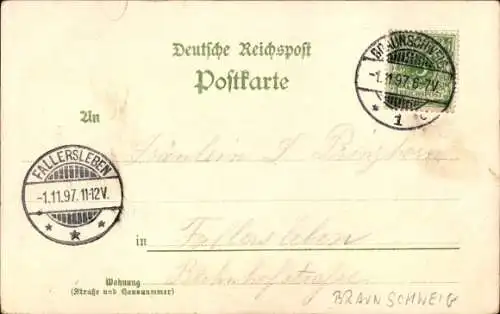 Deutsche Reichspost
Postkarte
BRAUNSCHWEIG
-1.11.97. 6-7V.
1 c
REICHSPOST
An
Fräulein
FALLERSLEBEN
-1.11.97. 11-12V.
in Fallersleben
Bahnhofstraße
Wohnung
(Straße und Hausnummer)
BRAUNSCHWEIG